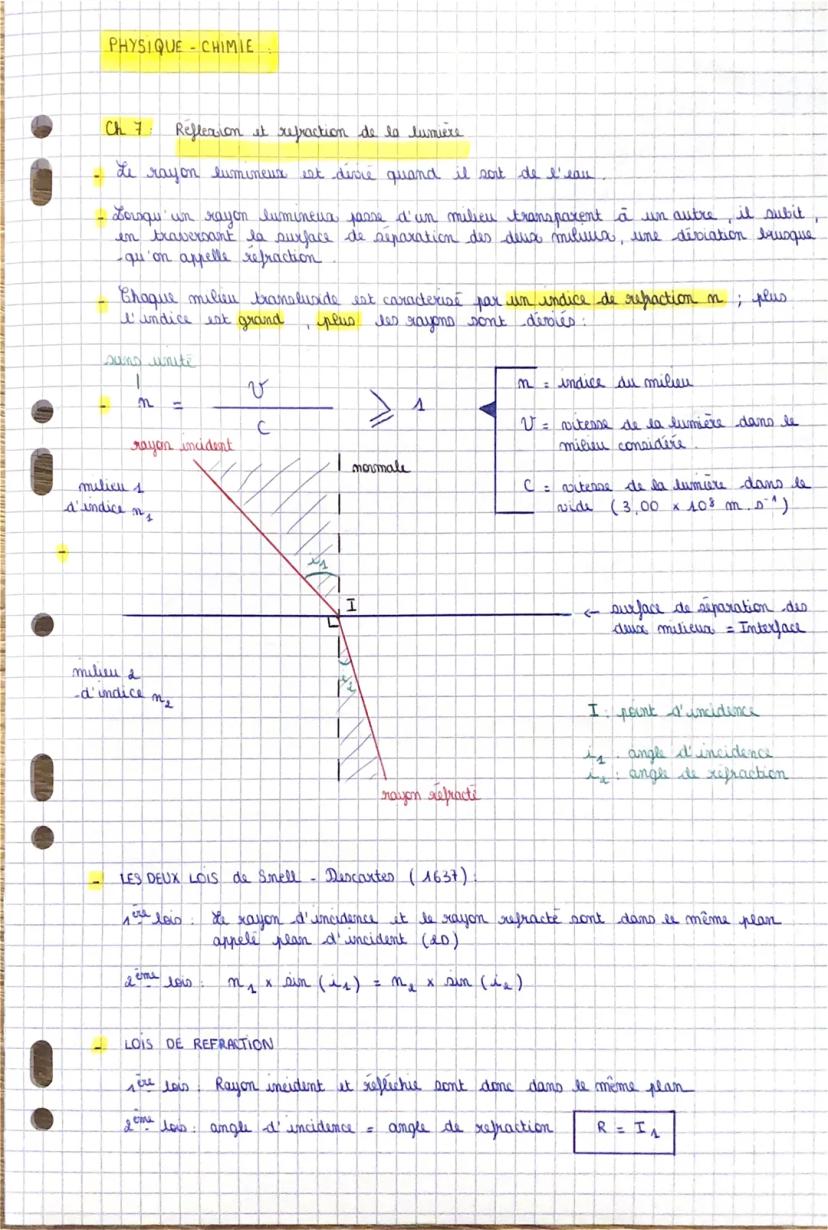 PHYSIQUE - CHIMIE :
Ch 7 : Réflexion et refraction de la lumière
- Le rayon lumineux est dévié quand il sort de l'eau.
- Lorsqu'un rayon lumineux passe d'un milieu transparent à un autre, il subit,
en traversant la surface de séparation des deux milieux, une déviation brusque
qu'on appelle réfraction.
- Chaque milieu translucide est caractérisé par un indice de refraction n ; plus
l'indice est grand, plus les rayons sont déviés :
sans unité
- n = V / C ⩾ 1
n = indice du milieu
V = vitesse de la lumière dans le
milieu considéré.
C = vitesse de la lumière dans le
vide (3,00 × 10⁸ m.s⁻¹)
rayon incident
normale
milieu 1
d'indice n₁
-
i₁
I
← surface de séparation des
deux milieux = Interface
milieu 2
d'indice n₂
i₂
I : point d'incidence
i₁ : angle d'incidence
i₂ : angle de réfraction
rayon réfracté
- LES DEUX LOIS de Snell - Descartes (1637) :
1ère lois : Le rayon d'incidence et le rayon refracté sont dans le même plan
appelé plan d'incident (2D)
2ème lois : n₁ × sin (i₁) = n₂ × sin (i₂)
- LOIS DE REFRACTION
1ère lois : Rayon incident et réfléchie sont donc dans le même plan
2ème lois : angle d'incidence = angle de refraction R = I₁